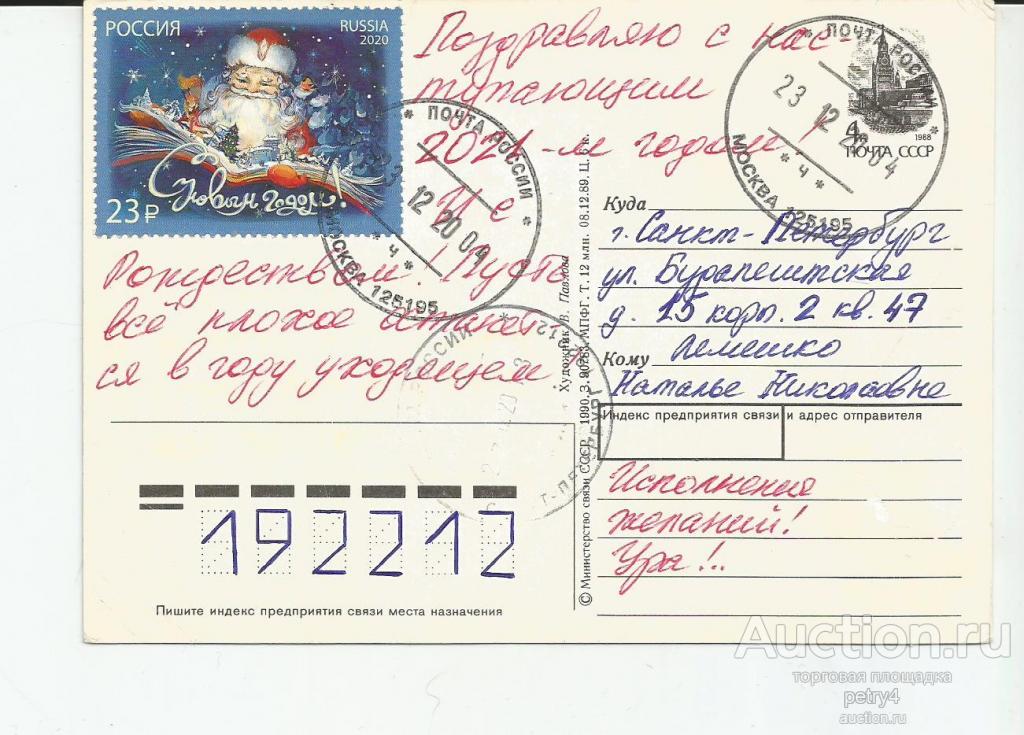 РОССИЯ
RUSSIA
2020
С Новым годом!
23₽
Поздравляю с нас-
тупающим
2021-м годом!
И с
Рождеством! Пусть
всё плохое останет-
ся в году уходящем
ПОЧТА РОССИИ
12 20 04
* ч *
МОСКВА 125195
ПОЧТА РОССИИ
23 12 20 04
* ч *
МОСКВА 125195
4к
1988
ПОЧТА СССР
Куда
г. Санкт-Петербург
ул. Будапештская
д. 15 корп. 2 кв. 47
Кому
Лемешко
Наталье Николаевне
Индекс предприятия связи и адрес отправителя
Исполнения
желаний!
Ура!..
192212
Пишите индекс предприятия связи места назначения
© Министерство связи СССР, 1990. З. 90283. МПФГ. Т. 12 млн. 08.12.89. Ц. 6 к.
Художник В. Павлова
Auction.ru
торговая площадка
petry4
auction.ru